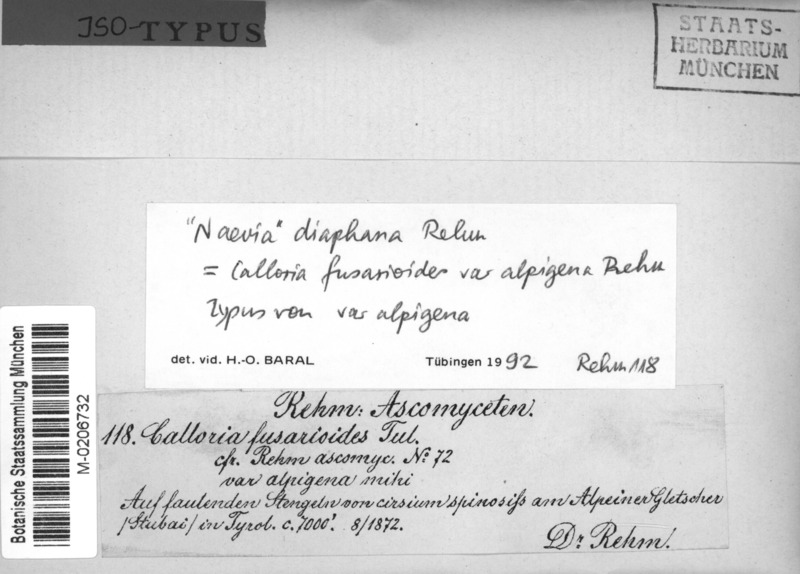 ISO-TYPUS
STAATS-
HERBARIUM
MÜNCHEN
"Naevia" diaphana Rehm
= Calloria fusarioides var alpigena Rehm
Typus von var alpigena
det. vid. H.-O. BARAL Tübingen 1992 Rehm 118
Botanische Staatssammlung München
M-0206732
Rehm: Ascomyceten.
118. Calloria fusarioides Tul.
cfr. Rehm ascomyc. No. 72
var alpigena mihi
Auf faulenden Stengeln von cirsium spinosiss am Alpeiner Gletscher
/Stubai/ in Tyrol. c. 7000'. 8/1872.
Dr Rehm.